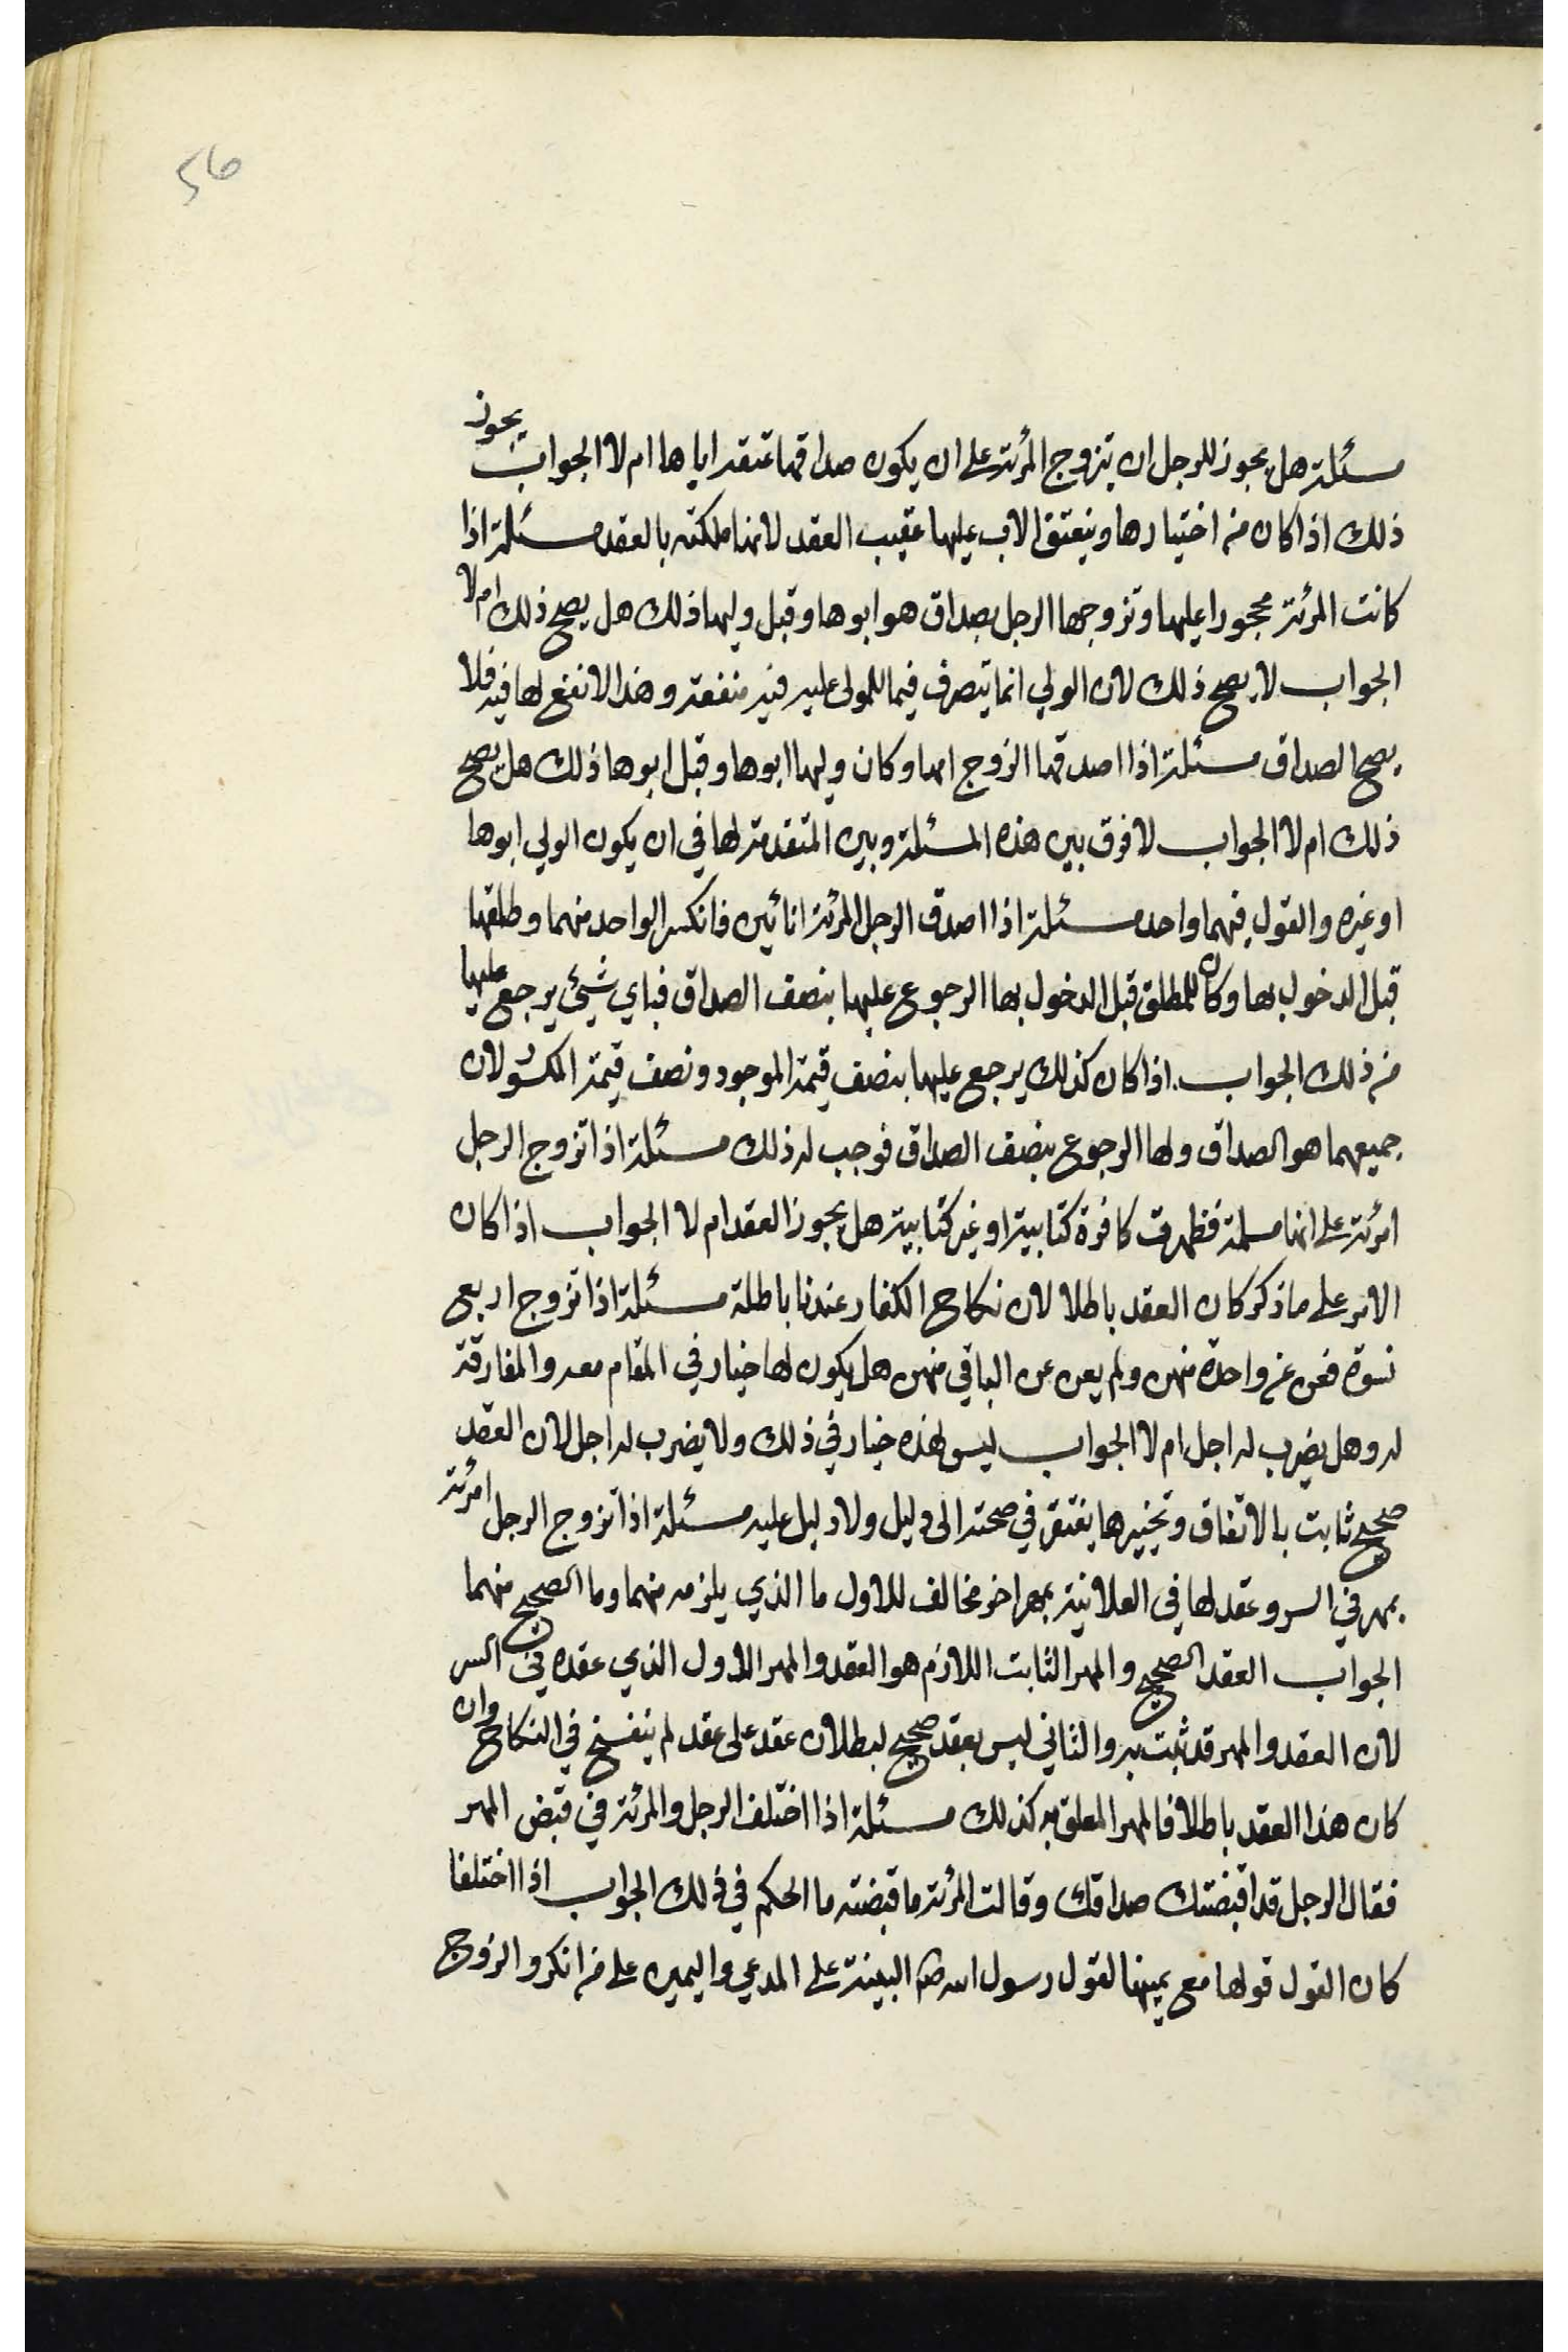 56
مسئلة هل يجوز للرجل ان يتزوج المرئة على ان يكون صداقها عتقه اباها ام لا الجواب يجوز
ذلك اذا كان من اختيارها وينعتق الاب عليها عقيب العقد لانها ملكته بالعقد مسئلة اذا
كانت المرئة محجورا عليها وتزوجها الرجل بصداق هو ابوها وقبل وليها ذلك هل يصح ذلك ام لا
الجواب لا يصح ذلك لان الولي انما يتصرف فيما للمولى عليه فيه منفعة وهذا لا نفع لها فيه فلا
يصح الصداق مسئلة اذا اصدقها الزوج امها وكان وليها ابوها وقبل ابوها ذلك هل يصح
ذلك ام لا الجواب لا فرق بين هذه المسئلة وبين المتقدمة لها في ان يكون الولي ابوها
او غيره والقول فيهما واحد مسئلة اذا اصدق الرجل المرئة انائين فانكسر الواحد منهما وطلقها
قبل الدخول بها وكان للمطلق قبل الدخول بها الرجوع عليها بنصف الصداق فباي شيئ يرجع عليها
من ذلك الجواب اذا كان كذلك يرجع عليها بنصف قيمة الموجود ونصف قيمة المكسور لان
جميعهما هو الصداق ولها الرجوع بنصف الصداق فوجب له ذلك مسئلة اذا تزوج الرجل
امرئة على انها مسلمة فظهرت كافرة كتابية او غير كتابية هل يجوز العقد ام لا الجواب اذا كان
الامر على ما ذكر كان العقد باطلا لان نكاح الكفار عندنا باطلة مسئلة اذا تزوج اربع
نسوة فعن عن واحدة منهن ولم يعن عن الباقي منهن هل يكون لها خيار في المقام معه والمفارقة
له وهل يضرب له اجل ام لا الجواب ليس لهذه خيار في ذلك ولا يضرب له اجل لان العقد
صحيح ثابت بالاتفاق وتخييرها يفتقر في صحته الى دليل ولا دليل عليه مسئلة اذا تزوج الرجل امرئة
بمهر في السر وعقد لها في العلانية بمهر اخر مخالف للاول ما الذي يلزمه منهما وما الصحيح منهما
الجواب العقد الصحيح والمهر الثابت اللازم هو العقد والمهر الاول الذي عقده في السر
لان العقد والمهر قد ثبت به والثاني ليس بعقد صحيح لبطلان عقد على عقد لم ينفسخ في النكاح وان
كان هذا العقد باطلا فالمهر المعلق به كذلك مسئلة اذا اختلف الرجل والمرئة في قبض المهر
فقال الرجل قد اقبضتك صداقك وقالت المرئة ما قبضته ما الحكم في ذلك الجواب اذا اختلفا
كان القول قولها مع يمينها لقول رسول الله ص البينة على المدعي واليمين على من انكر والزوج